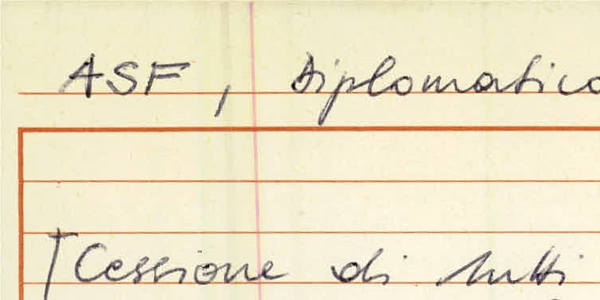 ASF, Diplomatico
[Cessione di tutti